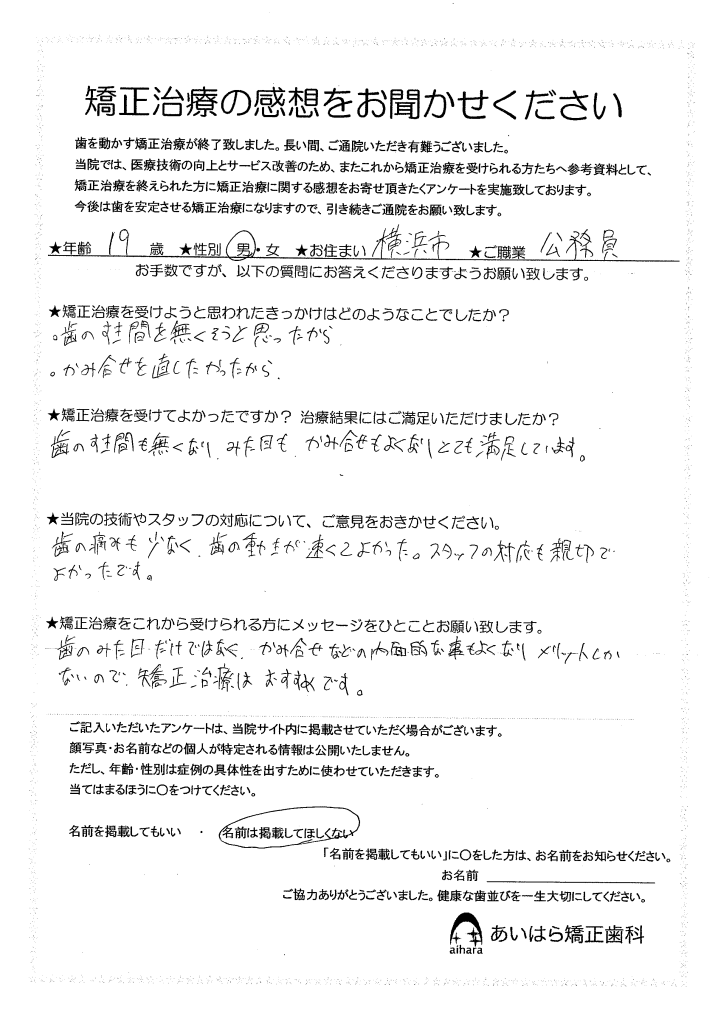 矯正治療の感想をお聞かせください
歯を動かす矯正治療が終了致しました。長い間、ご通院いただき有難うございました。
当院では、医療技術の向上とサービス改善のため、またこれから矯正治療を受けられる方たちへ参考資料として、
矯正治療を終えられた方に矯正治療に関する感想をお寄せ頂きたくアンケートを実施致しております。
今後は歯を安定させる矯正治療になりますので、引き続きご通院をお願い致します。
★年齢 19 歳 ★性別 男・女 ★お住まい 横浜市 ★ご職業 公務員
お手数ですが、以下の質問にお答えくださりますようお願い致します。
★矯正治療を受けようと思われたきっかけはどのようなことでしたか？
。歯のすき間を無くそうと思ったから
。かみ合せを直したかったから.
★矯正治療を受けてよかったですか？ 治療結果にはご満足いただけましたか？
歯のすき間も無くなり、みた目も、かみ合せもよくなりとても満足しています。
★当院の技術やスタッフの対応について、ご意見をおきかせください。
歯の痛みも少なく、歯の動きが速くてよかった。スタッフの対応も親切で
よかったです。
★矯正治療をこれから受けられる方にメッセージをひとことお願い致します。
歯のみた目だけではなく、かみ合せなどの内面的な事もよくなりメリットしか
ないので、矯正治療はおすすめです。
ご記入いただいたアンケートは、当院サイト内に掲載させていただく場合がございます。
顔写真・お名前などの個人が特定される情報は公開いたしません。
ただし、年齢・性別は症例の具体性を出すために使わせていただきます。
当てはまるほうに〇をつけてください。
名前を掲載してもいい ・ 名前は掲載してほしくない
「名前を掲載してもいい」に〇をした方は、お名前をお知らせください。
お名前
ご協力ありがとうございました。健康な歯並びを一生大切にしてください。
aihara あいはら矯正歯科